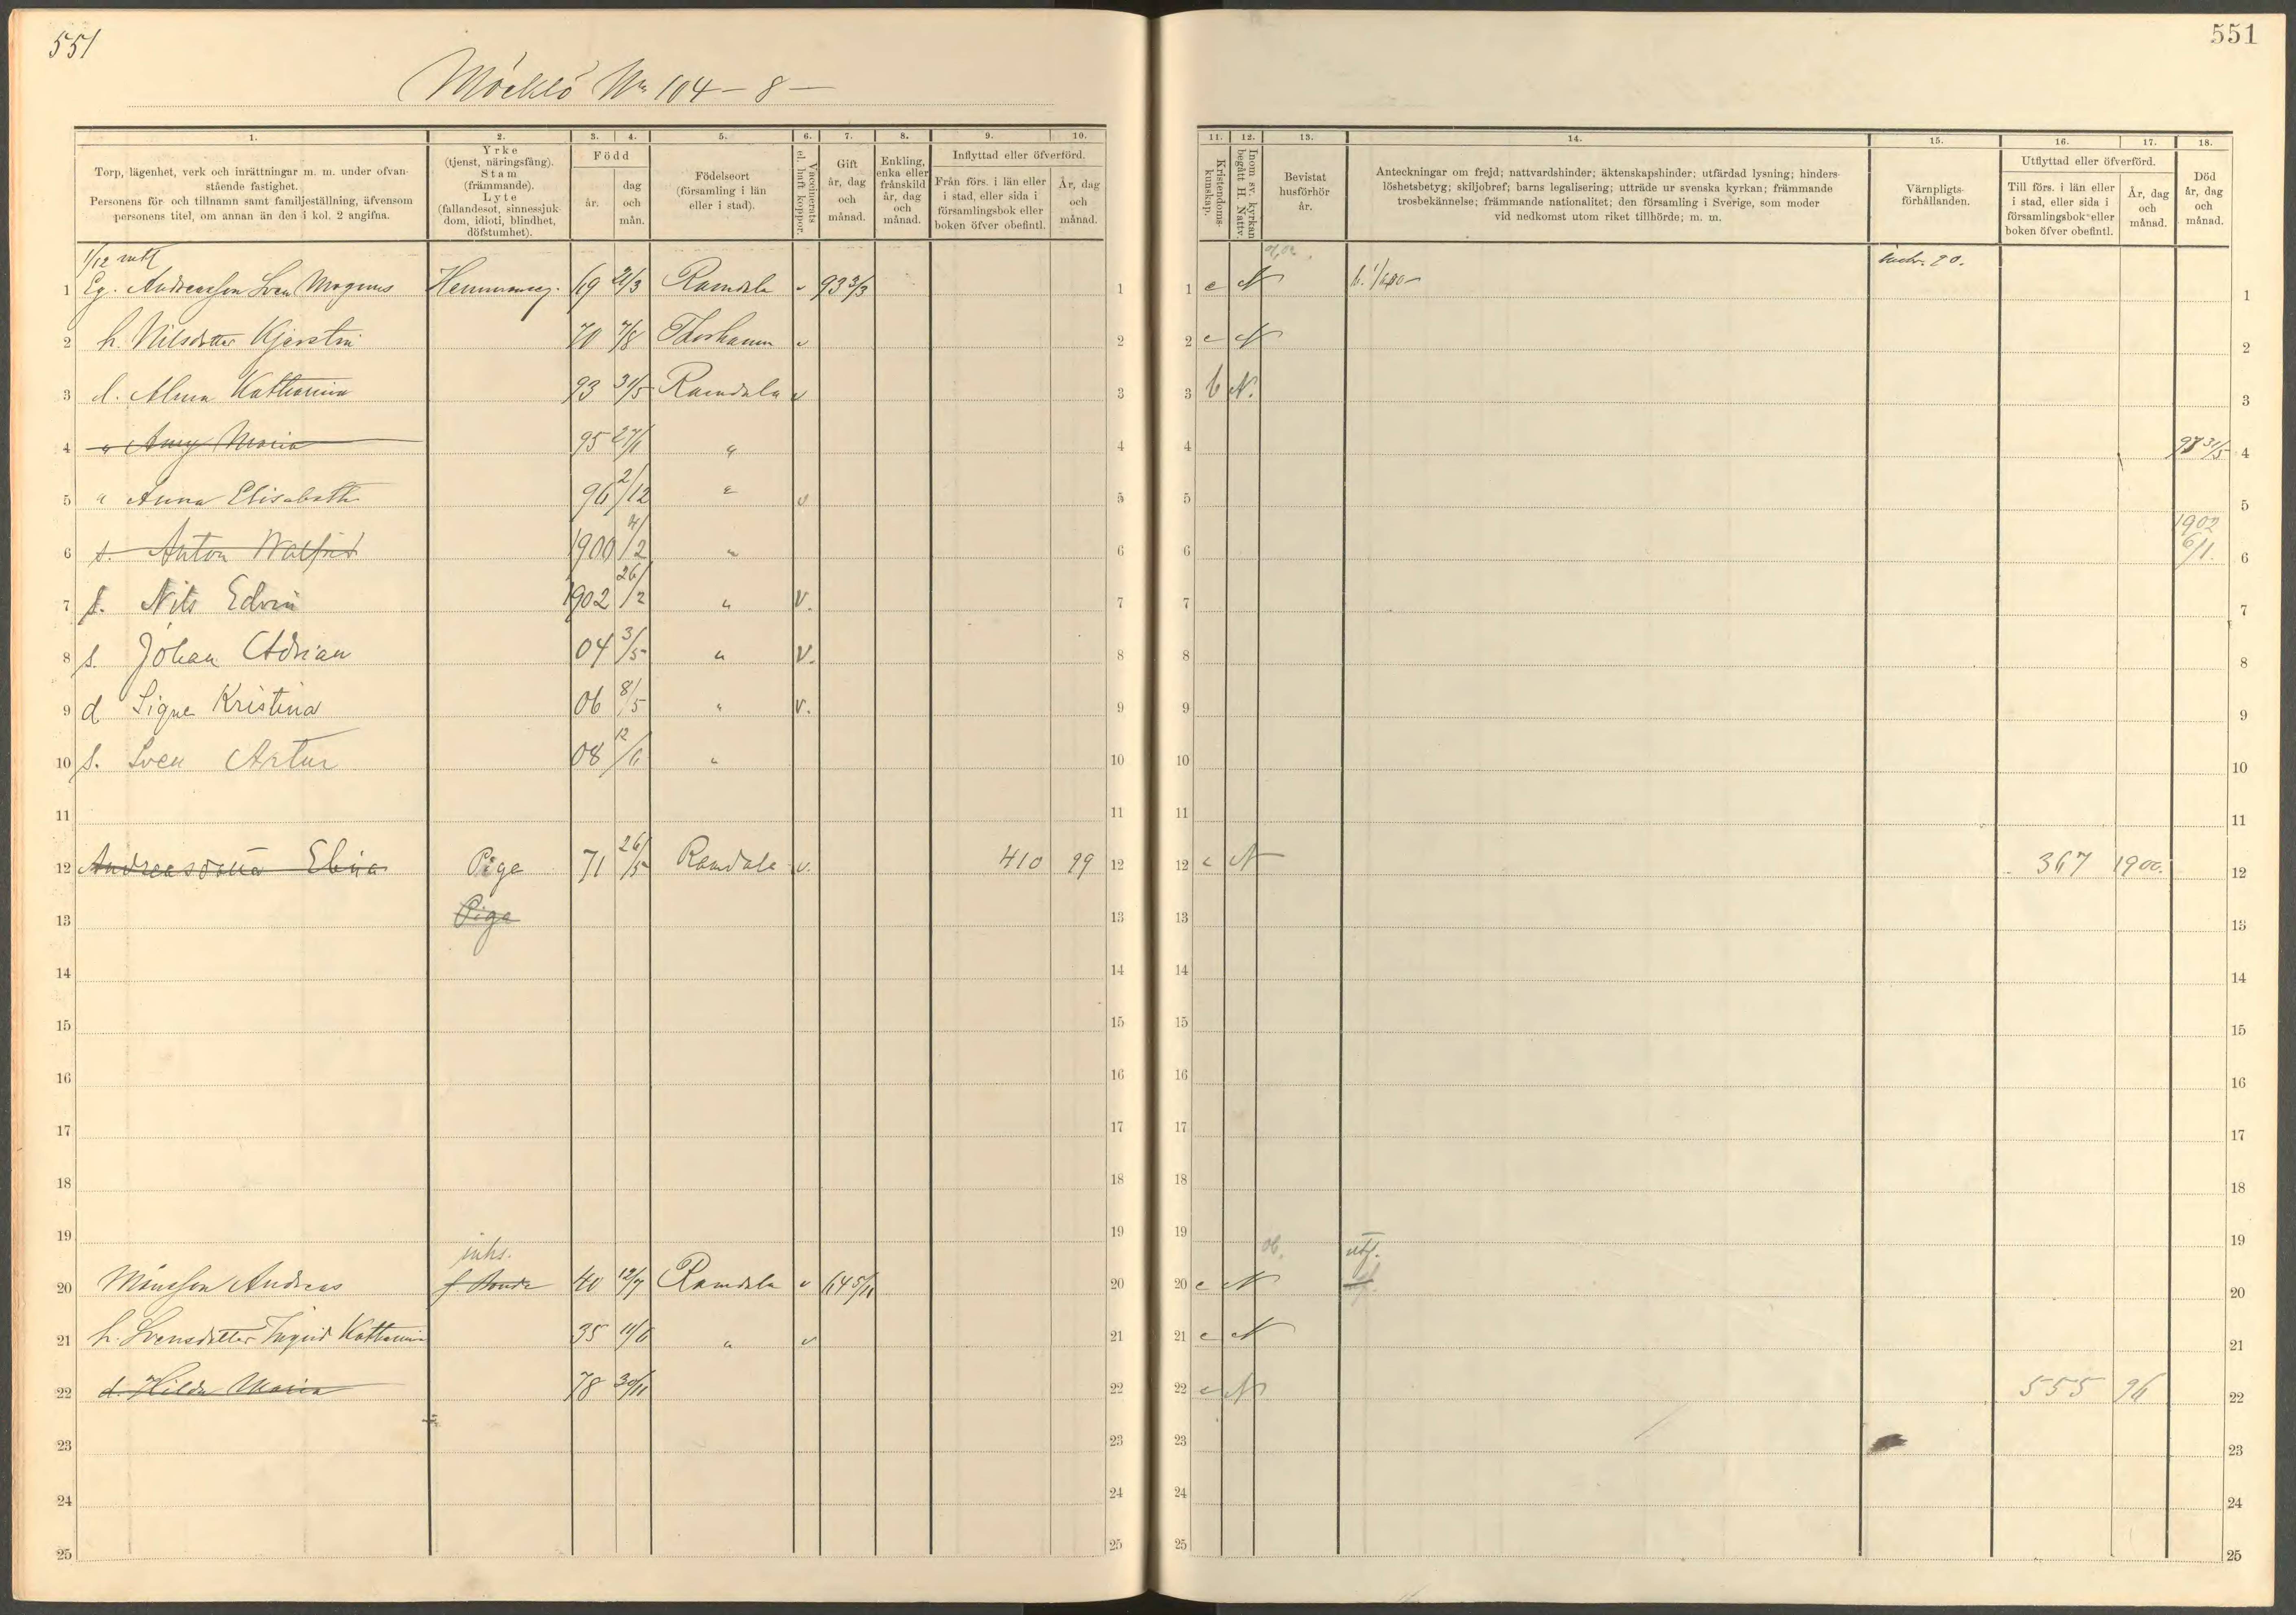 551
551
Möcklö No 104 - 8 -
1. 2. 3. 4. 5. 6. 7. 8. 9. 10.
Torp, lägenhet, verk och inrättningar m. m. under ofvan-
stående fastighet.
Personens för- och tillnamn samt familjeställning, äfvensom
personens titel, om annan än den i kol. 2 angifna.
Yrke
(tjenst, näringsfång).
Stam
(främmande).
Lyte
(fallandesot, sinnessjuk-
dom, idioti, blindhet,
döfstumhet).
Född
år.
dag
och
mån.
Födelseort
(församling i län
eller i stad).
Vaccinerats
el. haft koppor.
Gift
år, dag
och
månad.
Enkling,
enka eller
frånskild
år, dag
och
månad.
Inflyttad eller öfverförd.
Från förs. i län eller
i stad, eller sida i
församlingsbok eller
boken öfver obefintl.
År, dag
och
månad.
11. 12. 13. 14. 15. 16. 17. 18.
Kristendoms-
kunskap.
Inom sv. kyrkan
begått H. Nattv.
Bevistat
husförhör
år.
Anteckningar om frejd; nattvardshinder; äktenskapshinder; utfärdad lysning; hinders-
löshetsbetyg; skiljobref; barns legalisering; utträde ur svenska kyrkan; främmande
trosbekännelse; främmande nationalitet; den församling i Sverige, som moder
vid nedkomst utom riket tillhörde; m. m.
Värnpligts-
förhållanden.
Utflyttad eller öfverförd.
Till förs. i län eller
i stad, eller sida i
församlingsbok eller
boken öfver obefintl.
År, dag
och
månad.
Död
år, dag
och
månad.
1/12 mtl
1 Eg. Andreasson Sven Magnus Hemmanseg. 69 21/3 Ramdala v 93 3/3 1 1 c N 1
2 h. Nilsdotter Kjerstin 70 7/8 Thorhamn v 2 2 c N 2
3 d. Alma Katharina 93 31/5 Ramdala v 3 3 b N. 3
4 " Amy Maria 95 27/1 " 4 4 31/5 4
5 " Anna Elisabeth 96 2/12 " v 5 5 5
6 s. Anton Walfrid 1900 4/2 " 6 6 1902 6/1. 6
7 s. Nils Edvin 1902 26/2 " V. 7 7 7
8 s. Johan Adrian 04 3/5 " V. 8 8 8
9 d Signe Kristina 06 8/5 " V. 9 9 9
10 s. Sven Artur 08 12/6 " 10 10 10
11 11 11 11
12 Andreasdotter Elina Piga 71 26/5 Ramdala v. 410 99 12 12 c N 367 1900. 12
13 Piga 13 13 13
14 14 14 14
15 15 15 15
16 16 16 16
17 17 17 17
18 18 18 18
19 19 19 19
inhs. 06.
20 Månsson Andreas f. Bonde 40 12/7 Ramdala v 64 5/11 20 20 c N 20
21 h. Svensdotter Ingrid Katharina 35 11/6 " v 21 21 c N 21
22 d. Hilda Maria 78 30/11 22 22 c N 555 96 22
23 23 23 23
24 24 24 24
25 25 25 25